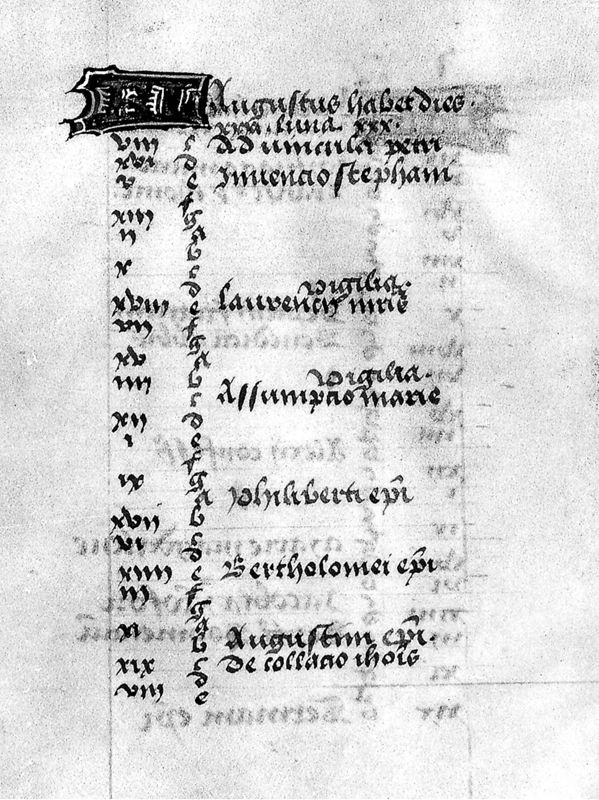 KL Augustus habet dies.
xxxi. luna xxx.
viii c Ad vincula petri
xvi d
v e Invencio stephani
f
xiii g
ii A
b
x c
d Vigilia.
xviii e laurencij mris
vii f
g
xv A
iiii b Vigilia.
c Assumpcio marie
xii d
i e
f
ix g
A Philiberti epi
xvii b
vi c
d
xiiii e Bertholomei epi
iii f
g
xi A
b Augustini epi.
xix c De collacio ihois
d
viii e